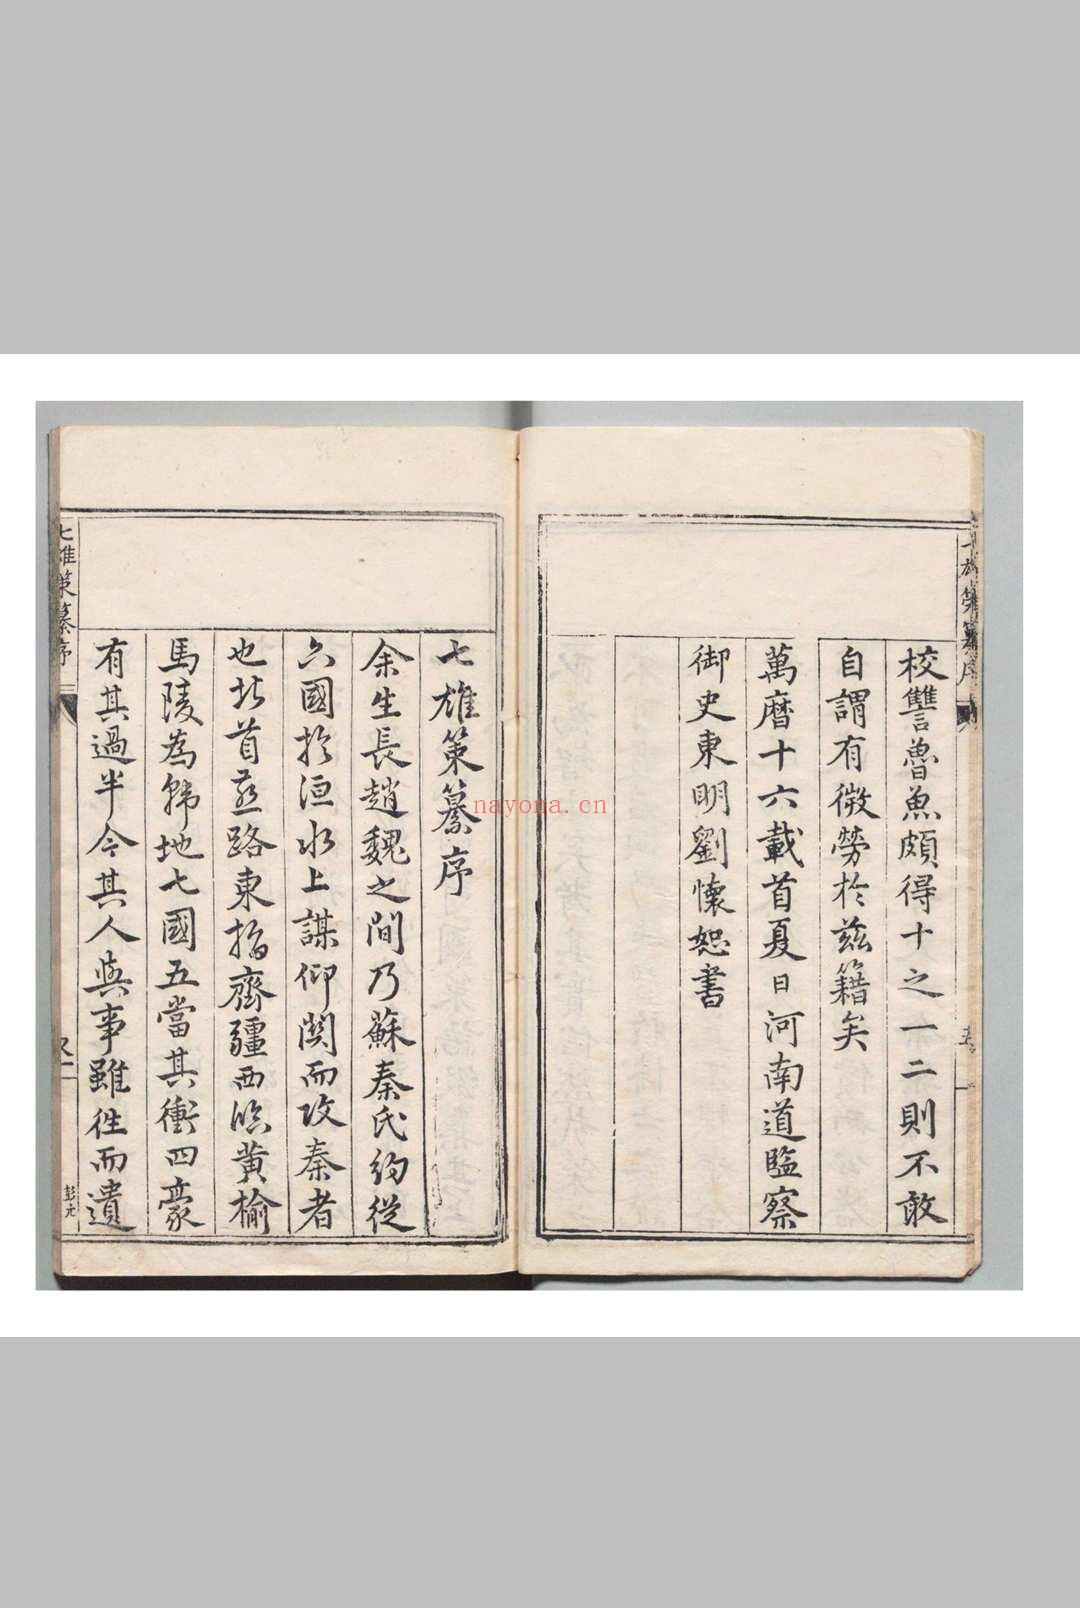 校讐魯魚頗得十之一二則不敢
自謂有微勞於兹籍矣
萬曆十六載首夏日河南道監察
御史東明劉懷恕書
七雄策纂序
余生長趙魏之間乃蘇秦氏約從
六國於洹水上謀仰関而攻秦者
也北首燕路東指齊疆西臨黄榆
馬陵為韩地七國五當其衝四豪
有其過半今其人與事雖徃而遺
七雄策纂序
彭元
nayona.cn